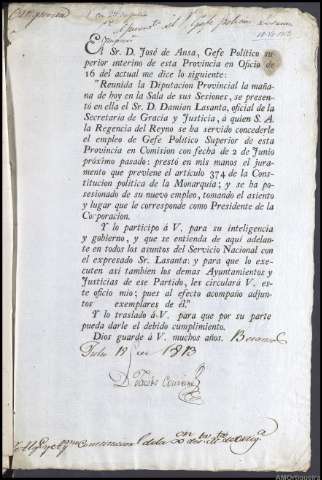 El Sr. D. José de Ansa, Gefe Político su
perior interino de esta Provincia en Oficio de
16 del actual me dice lo siguiente:
"Reunida la Diputacion Provincial la maña-
na de hoy en la Sala de sus Sesiones, se presen-
tó en ella el Sr. D. Damian Lasanta, oficial de la
Secretaria de Gracia y Justicia, á quien S. A.
la Regencia del Reyno se ha servido concederle
el empleo de Gefe Político Superior de esta
Provincia en Comision con fecha de 2 de Junio
próximo pasado: prestó en mis manos el jura-
mento que previene el artículo 374 de la Cons-
titucion politica de la Monarquia; y se ha po-
sesionado de su nuevo empleo, tomando el asiento
y lugar que le corresponde como Presidente de la
Corporacion.
Y lo participo á V. para su inteligencia
y gobierno, y que se entienda de aquí adelan-
te en todos los asuntos del Servicio Nacional con
el expresado Sr. Lasanta: y para que lo exe-
cuten asi tambien los demas Ayuntamientos y
Justicias de ese Partido, les circulará V. es-
te oficio mio; pues al efecto acompaño adjun-
tos exemplares de él."
Y lo traslado á V. para que por su parte
pueda darle el debido cumplimiento.
Dios guarde á V. muchos años. Betanzos
Julio 18 de 1813
AMOrtigueira